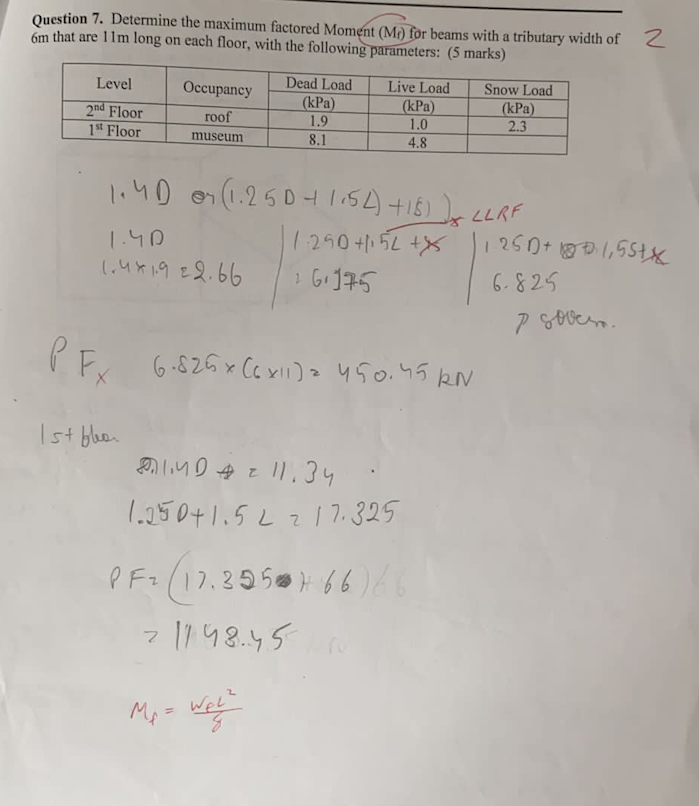 Question 7. Determine the maximum factored Moment (Mf) for beams with a tributary width of 2
6m that are 11m long on each floor, with the following parameters: (5 marks)
Level Occupancy Dead Load (kPa) Live Load (kPa) Snow Load (kPa)
2nd Floor roof 1.9 1.0 2.3
1st Floor museum 8.1 4.8
1.4D or (1.25D + 1.5L) + 1S)
LLRF
1.4D 1.25D + 1.5L + 1.25D + 1.5S +
1.4 x 1.9 = 2.66 = 6.175 6.825
govern.
PFx 6.825 x (6 x 11) = 450.45 kN
1st
1.4D = 11.34
1.25D + 1.5L = 17.325
PF = (17.325 x 66)
= 1143.45
Mf = WfL²/8